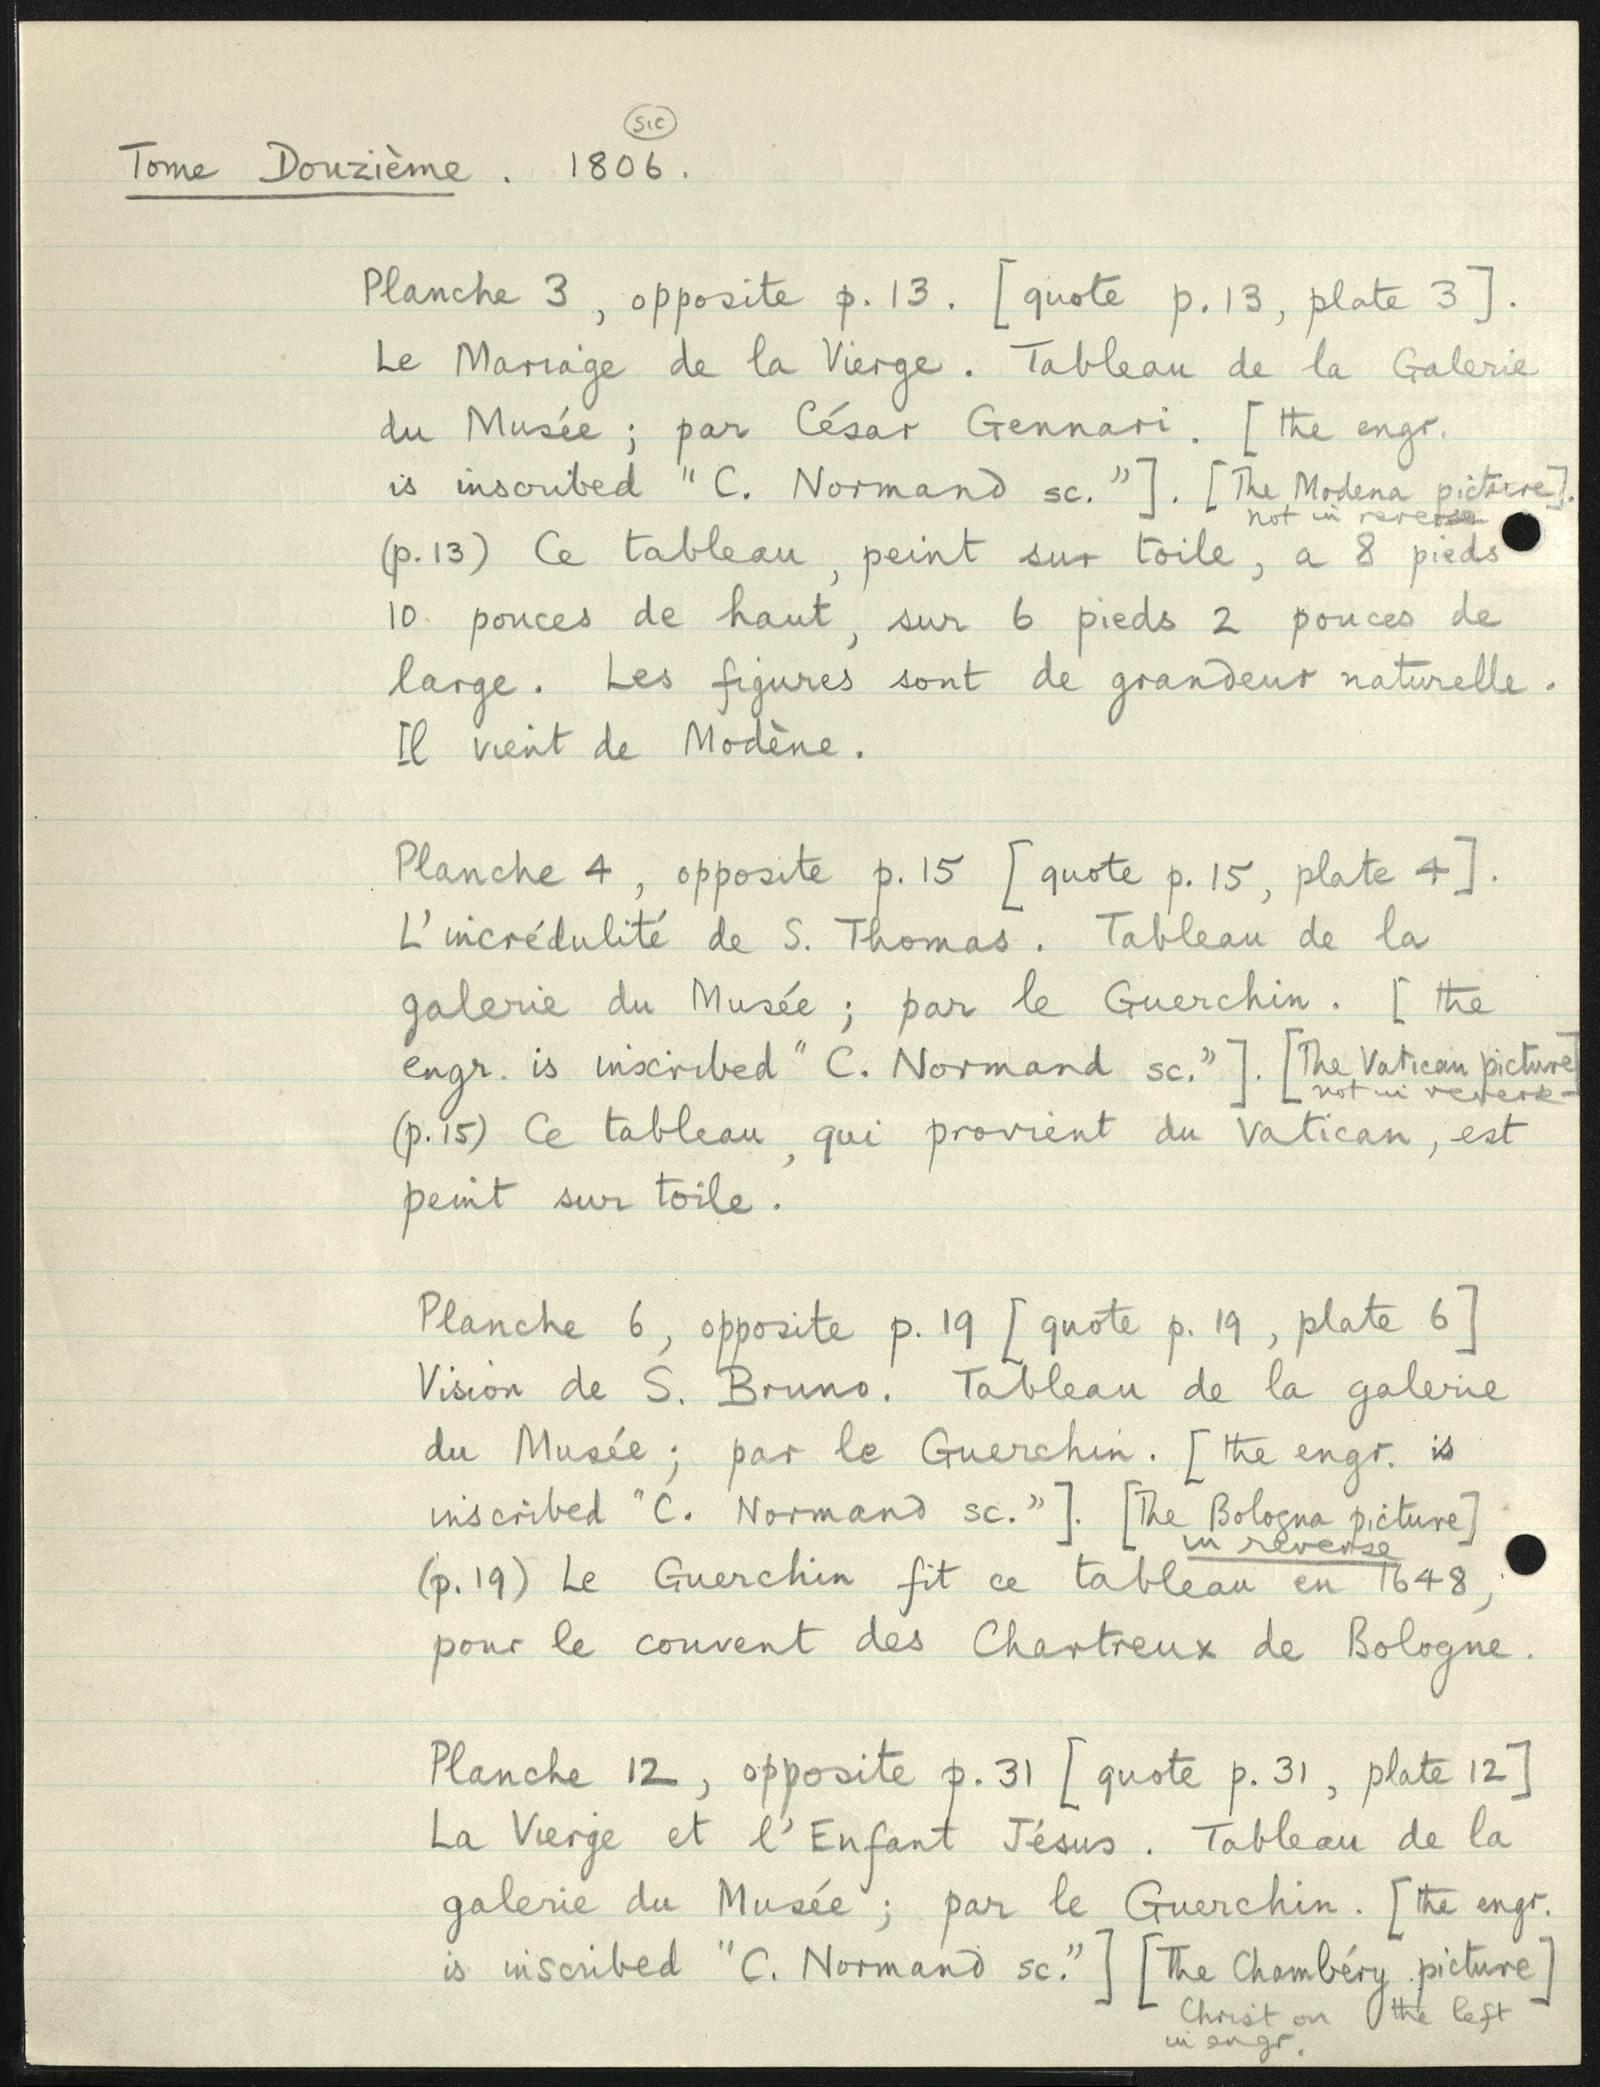 sic
Tome Douzième . 1806 .
Planche 3 , opposite p. 13 . [ quote p. 13 , plate 3 ] .
Le Mariage de la Vierge . Tableau de la Galerie
du Musée ; par César Gennari . [ the engr.
is inscribed " C. Normand sc. " ] . [ The Modena picture ] .
not in reverse
(p. 13) Ce tableau , peint sur toile , a 8 pieds
10 pouces de haut , sur 6 pieds 2 pouces de
large . Les figures sont de grandeur naturelle .
Il vient de Modène .
Planche 4 , opposite p. 15 [ quote p. 15 , plate 4 ] .
L'incrédulité de S. Thomas . Tableau de la
galerie du Musée ; par le Guerchin . [ the
engr. is inscribed " C. Normand sc. " ] . [ The Vatican picture ]
not in reverse
(p. 15) Ce tableau , qui provient du Vatican , est
peint sur toile .
Planche 6 , opposite p. 19 [ quote p. 19 , plate 6 ]
Vision de S. Bruno . Tableau de la galerie
du Musée ; par le Guerchin . [ the engr. is
inscribed " C. Normand sc. " ] . [ The Bologna picture ]
in reverse
(p. 19) Le Guerchin fit ce tableau en 1648 ,
pour le couvent des Chartreux de Bologne .
Planche 12 , opposite p. 31 [ quote p. 31 , plate 12 ]
La Vierge et l'Enfant Jésus . Tableau de la
galerie du Musée ; par le Guerchin . [ the engr.
is inscribed " C. Normand sc. " ] [ The Chambéry picture ]
Christ on the left
in engr.